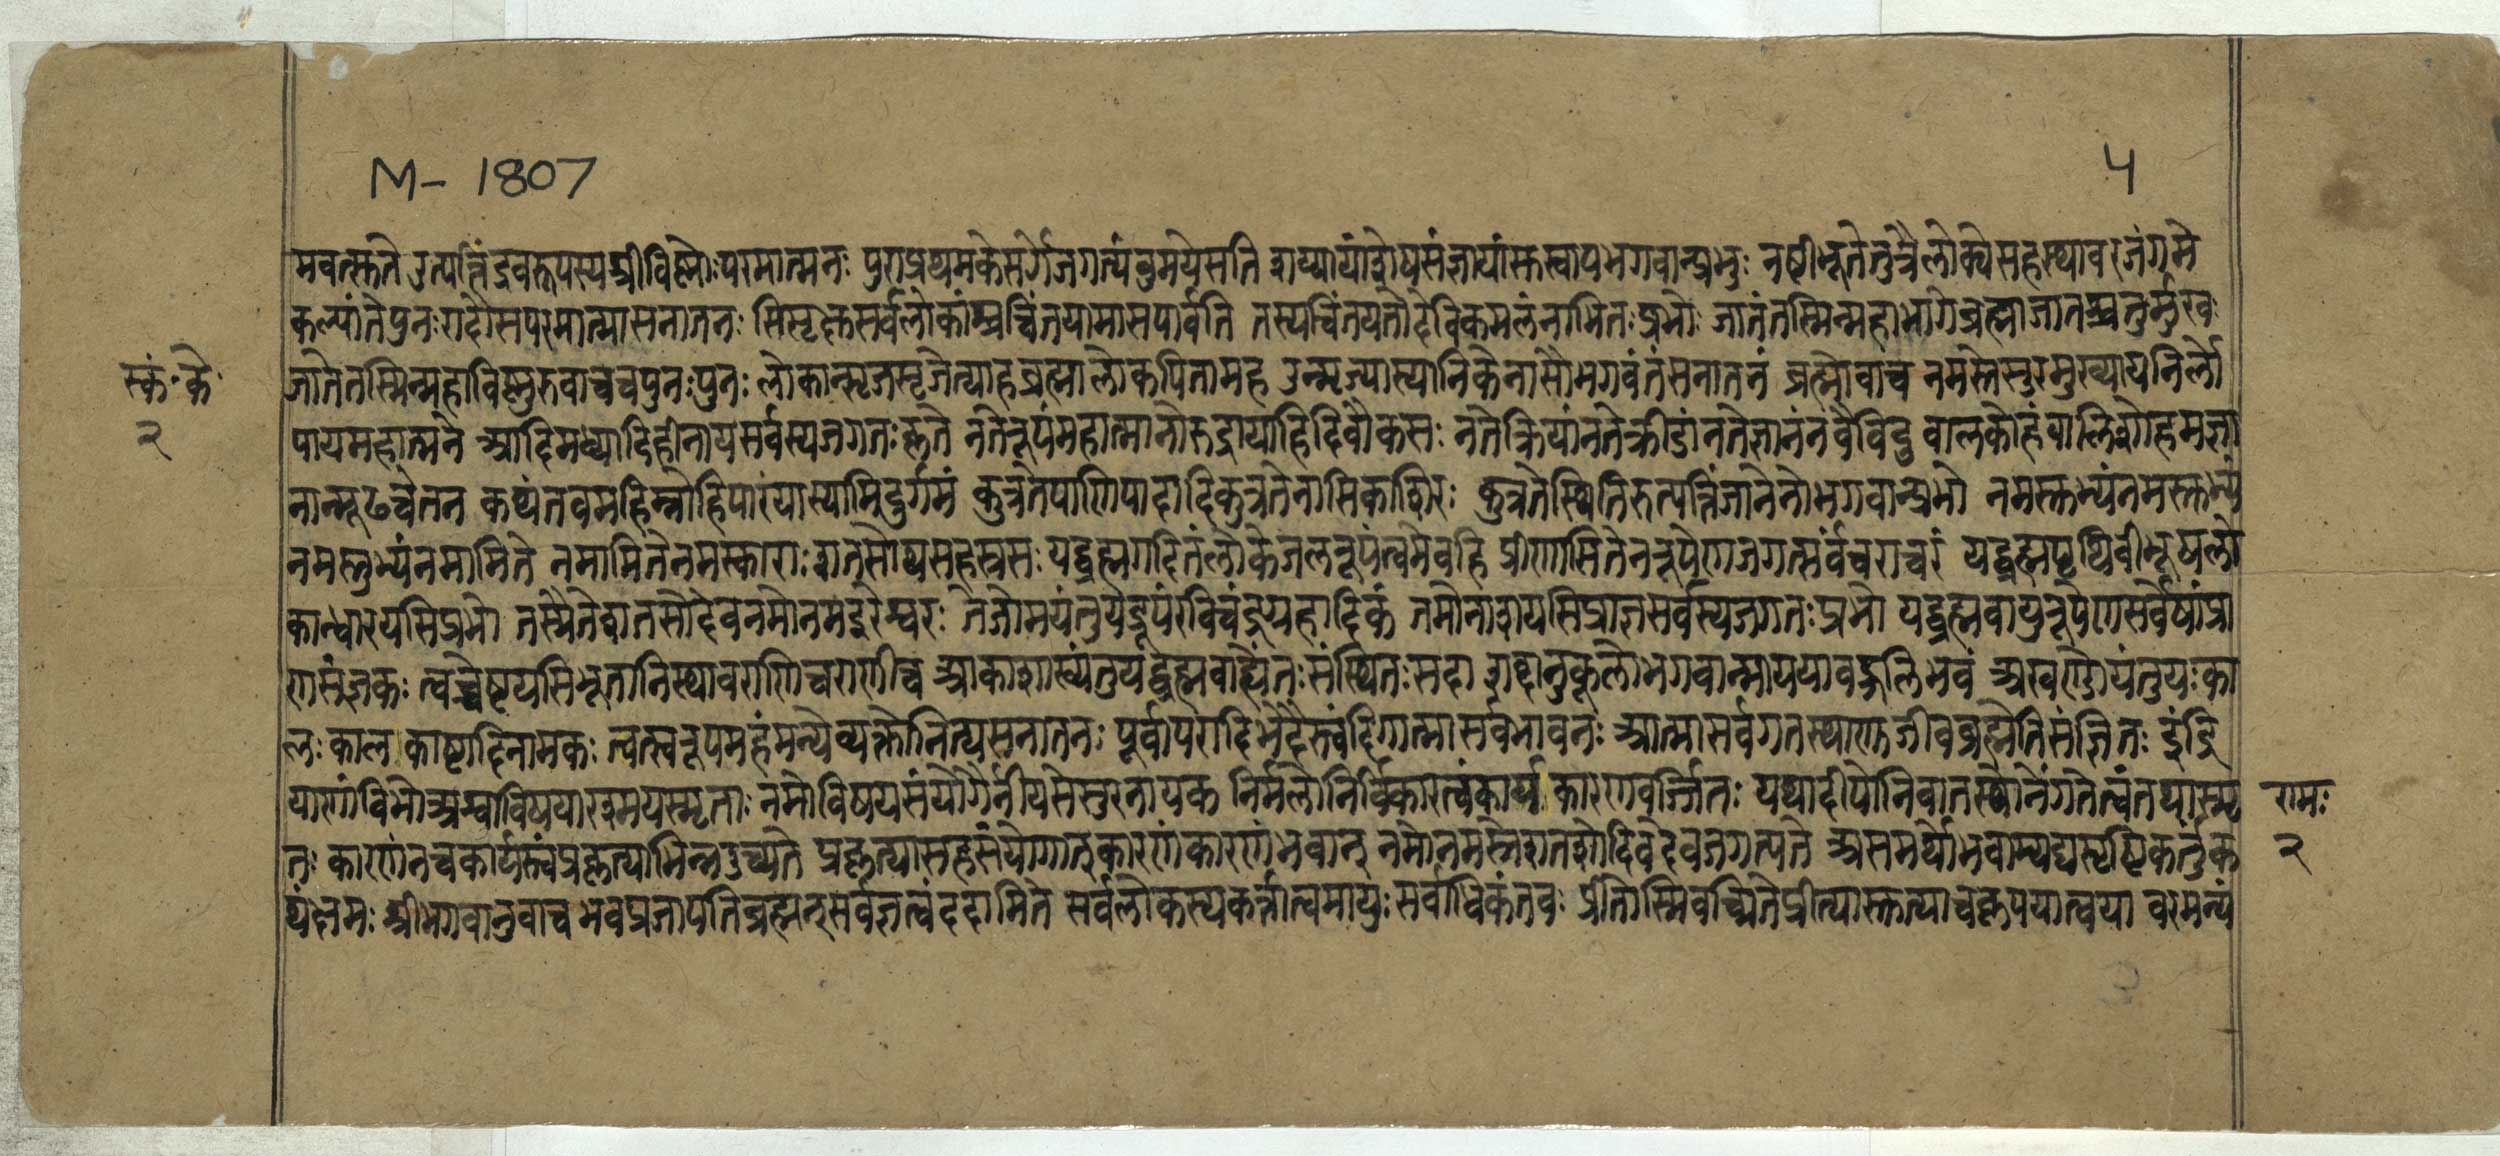 M- 1807
५
मवत्स्तुते उत्पत्तिं द्रवरूपस्य श्रीविष्णोः परमात्मनः पुरा प्रथमके सर्गे जगत्यंबुमये सति शय्यायां शेषसंज्ञायां सुस्वाप भगवान्प्रभुः नष्टीभूते तु त्रैलोक्ये सहस्थावरजंगमे
कल्पांते पुनरादौ स परमात्मा सनातनः सिसृक्षुः सर्वलोकांश्च चिंतयामास पार्वति तस्य चिंतयतो देवि कमलं नाभितः प्रभोः जातं तस्मिन्महाभागे ब्रह्मा जातश्चतुर्मुखः
स्कं॰ के॰
२
जाते तस्मिन्महाविष्णुरुवाच च पुनः पुनः लोकान्सृज सृजेत्याह ब्रह्मा लोकपितामह उन्मृज्यास्यानि केनासौ भगवंतं सनातनं ब्रह्मोवाच नमस्ते सुरमुख्याय निर्लो
पाय महात्मने आदिमध्यादिहीनाय सर्वस्य जगतः कृते न ते रूपं महात्मानो रुद्राद्या हि दिवौकसः न ते क्रियां न ते क्रीडां न ते ज्ञानं न वै विदु बालकोहं बालिशोहमज्ञा
नान्मूढचेतन कथं तव महिम्नो हि पारं यास्यामि दुर्गमं कुत्र ते पाणिपादादि कुत्र ते नासिकाशिरः कुत्र ते स्थितिरुत्पत्तिं जाने नो भगवान्प्रभो नमस्तुभ्यं नमस्तुभ्यं
नमस्तुभ्यं नमामि ते नमामि ते नमस्काराः शतसोथ सहस्रसः यद्ब्रह्म गदितं लोके जलरूपं त्वमेव हि प्रीणासि तेन रूपेण जगत्सर्वं चराचरं यद्ब्रह्म पृथिवीभूषलो
कान्धारयसि प्रभो तस्मै ते शतसो देव नमो नम इरेश्वरः तेजोमयं तु यद्रूपं रविचंद्रग्रहादिकं तमो नाशयसि प्राज्ञ सर्वस्य जगतः प्रभो यद्ब्रह्म वायुरूपेण सर्वेषां प्रा
णसंज्ञकः त्वं चेष्टयसि भूतानि स्थावराणि चराणि च आकाशाख्यं तु यद्ब्रह्म बाह्यांतः संस्थितः सदा शब्दानुकूलो भगवान्मायया वह्नलिभवं अखण्डोयं तु यः का
लः काल काष्ठादिनामकः त्वत्स्वरूपमहं मन्ये व्यक्तो नित्य सनातनः पूर्वापरादिभेदैस्त्वं दिगात्मा सर्वभावनः आत्मा सर्वगतस्थाणु जीवब्रह्मेति संज्ञितः इंद्रि
याणां विभो अश्वा विषया स्मृताः नमो विषयसंयोगैर्नीयसे सुरनायक निर्मलो निर्विकारत्वं कार्य कारणवर्जितः यथा दीपो निवातस्थो नेंगते त्वं तथा स्मृ
रामः
२
तः कारणं न च कार्यस्त्वं प्रकृत्या भिन्न उच्यते प्रकृत्या सह संयोगात् कारणं कारणं भवान् नमो नमस्ते शतशो देवदेव जगत्पते असमर्थो भवाम्यद्य सृष्टिकर्तुं क
थं क्षमः श्रीभगवानुवाच भव प्रजापति ब्रह्मन् सर्वज्ञत्वं ददामि ते सर्वलोकस्य कर्त्तात्वमायुः सर्वाधिकं तव प्रीतोस्मि वच्मि ते प्रीत्या स्तुत्या च कृपया त्वया वरमन्यं